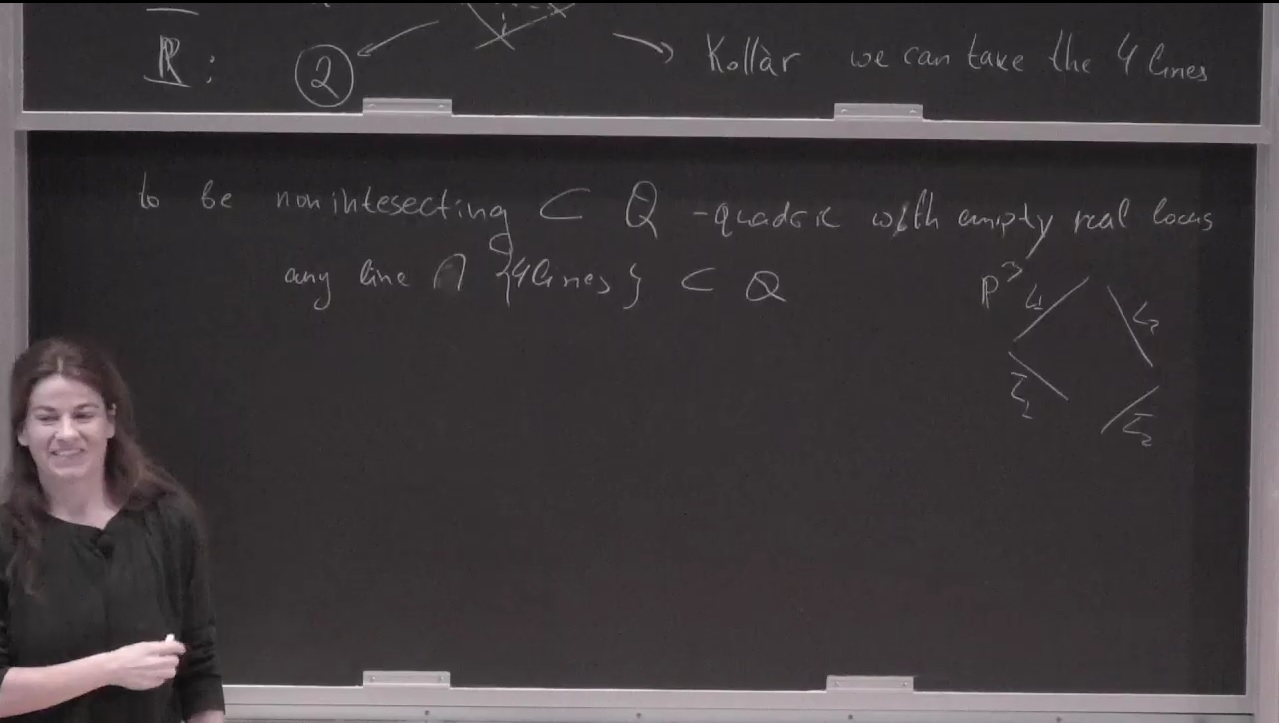 ℝ: ② Kollàr we can take the 4 lines
to be nonintesecting ⊂ Q - quadric with empty real locus
any line ∩ {4 lines} ⊂ Q
P³ L₁ L₂
L̄₁ L̄₂